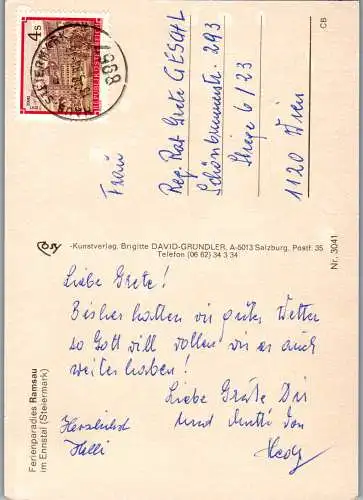 Ferienparadies Ramsau
im Ennstal (Steiermark)
Liebe Grete!
Bisher hatten wir gutes Wetter
so Gott will wollen wir es auch
weiterhaben!
Liebe Grüße Dir
und Mutti von
Hedy
Herzlichst
Helli
-Kunstverlag, Brigitte DAVID-GRÜNDLER, A-5013 Salzburg, Postf. 35
Telefon (06 62) 34 3 34
Nr. 3041
CB
4 S
REPUBLIK ÖSTERREICH
8967
Frau
Reg. Rat Grete GESCHL
Schönbrunnerstr. 293
Stiege 6/23
1120 Wien